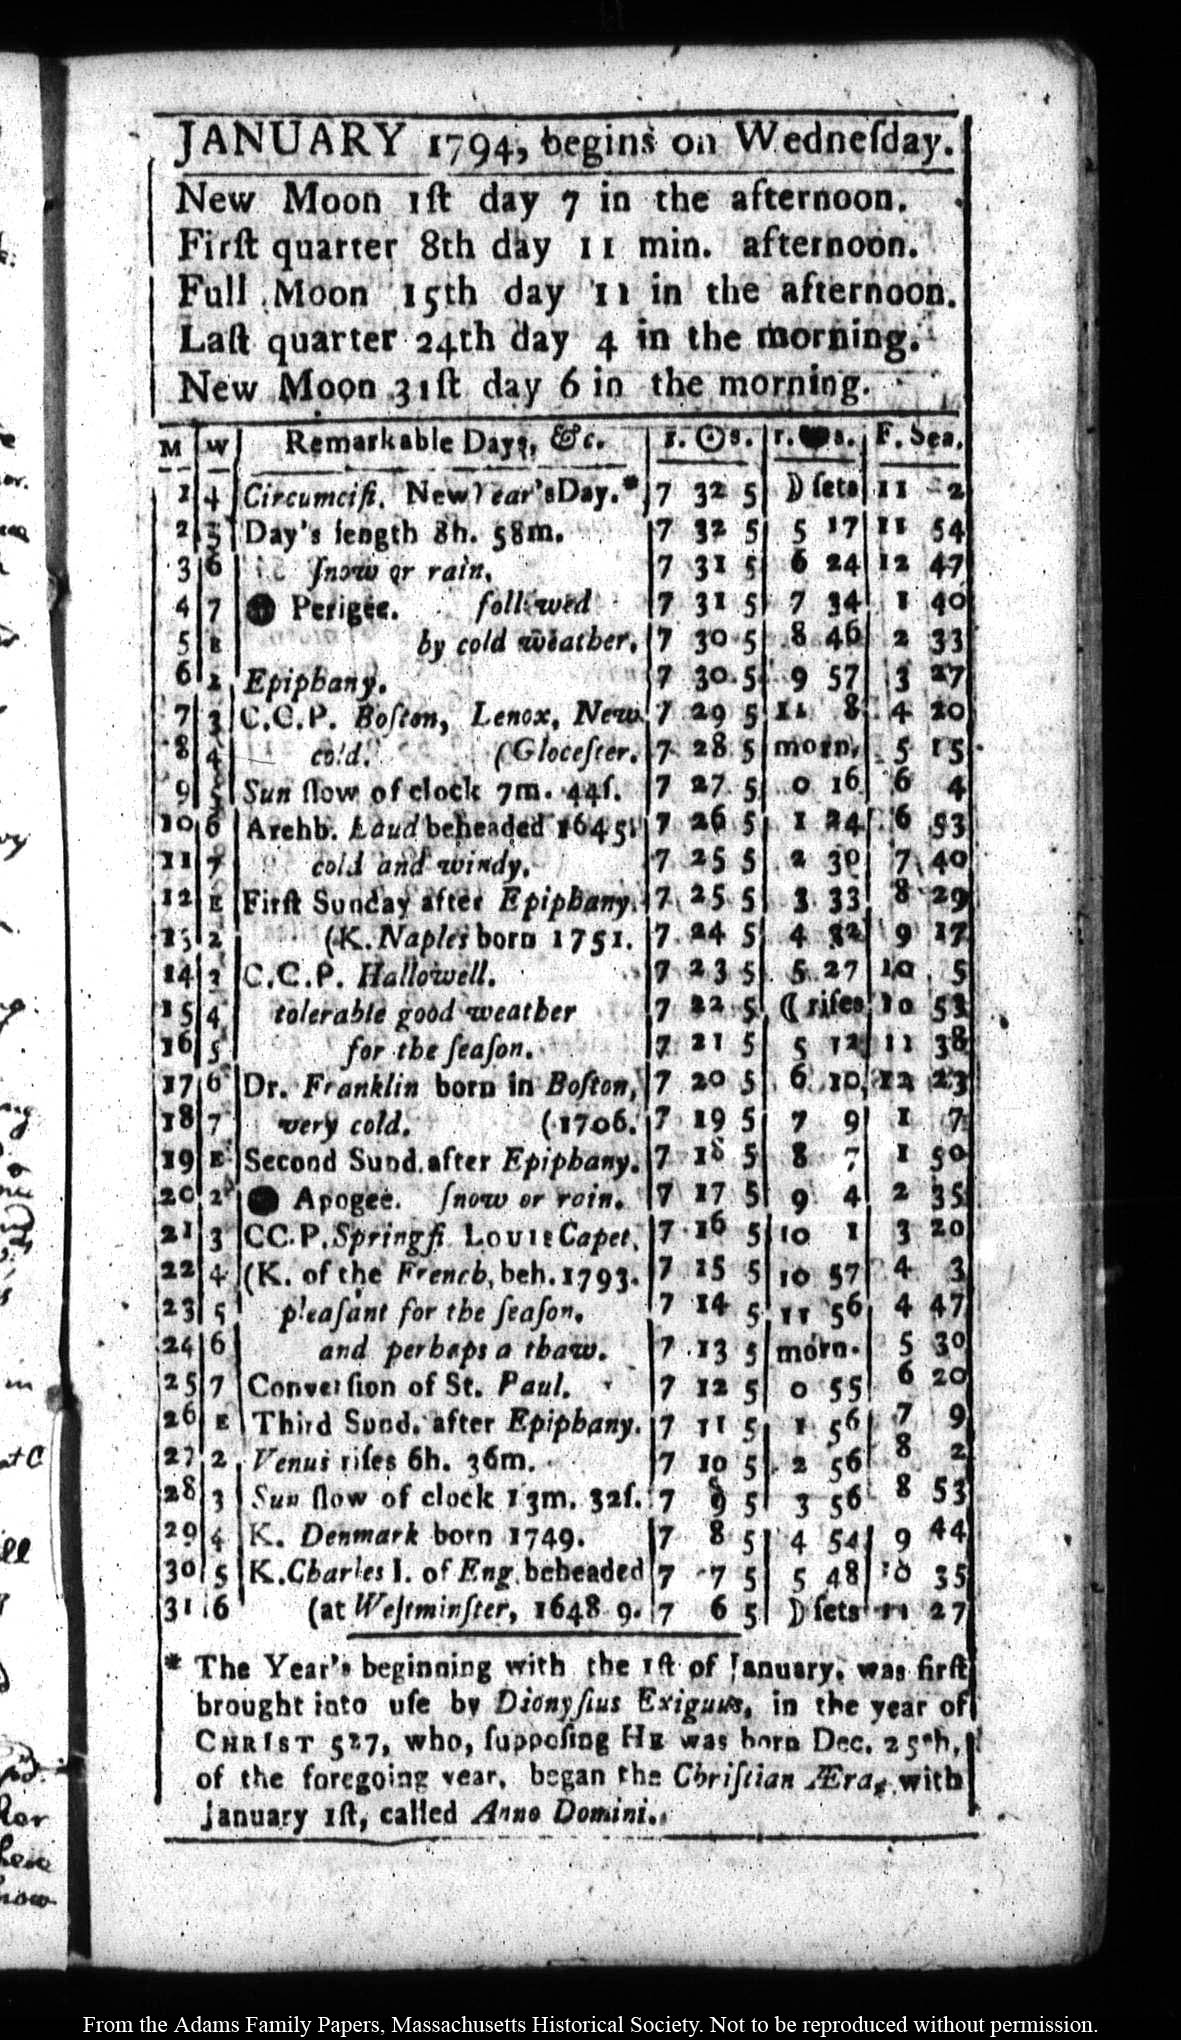 JANUARY 1794, begins on Wedneſday.
New Moon 1ſt day 7 in the afternoon.
Firſt quarter 8th day 11 min. afternoon.
Full Moon 15th day 11 in the afternoon.
Laſt quarter 24th day 4 in the morning.
New Moon 31ſt day 6 in the morning.
M W Remarkable Days, &c. r. ☉ s. r. s. F. Sea.
1 4 Circumciſi. New Year's Day.* 7 32 5 ☽ ſets 11 2
2 5 Day's length 8h. 58m. 7 32 5 5 17 11 54
3 6 ſnow or rain, 7 31 5 6 24 12 47
4 7 Perigee. followed 7 31 5 7 34 1 40
5 E by cold weather. 7 30 5 8 46 2 33
6 2 Epiphany. 7 30 5 9 57 3 27
7 3 C.C.P. Boſton, Lenox, New 7 29 5 11 8 4 20
8 4 cold. (Gloceſter. 7 28 5 morn. 5 15
9 5 Sun ſlow of clock 7m. 44ſ. 7 27 5 0 16 6 4
10 6 Archb. Laud beheaded 1645. 7 26 5 1 24 6 53
11 7 cold and windy. 7 25 5 2 30 7 40
12 E Firſt Sunday after Epiphany. 7 25 5 3 33 8 29
13 2 (K. Naples born 1751. 7 24 5 4 32 9 17
14 3 C.C.P. Hallowell. 7 23 5 5 27 10 5
15 4 tolerable good weather 7 22 5 ☾ riſes 10 53
16 5 for the ſeaſon. 7 21 5 5 12 11 38
17 6 Dr. Franklin born in Boſton, 7 20 5 6 10 12 23
18 7 very cold. (1706. 7 19 5 7 9 1 7
19 E Second Sund. after Epiphany. 7 18 5 8 7 1 50
20 2 Apogee. ſnow or rain. 7 17 5 9 4 2 35
21 3 CC.P. Springfi. LOUIS Capet, 7 16 5 10 1 3 20
22 4 (K. of the French, beh. 1793. 7 15 5 10 57 4 3
23 5 pleaſant for the ſeaſon, 7 14 5 11 56 4 47
24 6 and perhaps a thaw. 7 13 5 morn. 5 30
25 7 Converſion of St. Paul. 7 12 5 0 55 6 20
26 E Third Sund. after Epiphany. 7 11 5 1 56 7 9
27 2 Venus riſes 6h. 36m. 7 10 5 2 56 8 2
28 3 Sun ſlow of clock 13m. 32ſ. 7 9 5 3 56 8 53
29 4 K. Denmark born 1749. 7 8 5 4 54 9 44
30 5 K. Charles I. of Eng. beheaded 7 7 5 5 48 10 35
31 6 (at Weſtminſter, 1648 9. 7 6 5 ☽ ſets 11 27
* The Year's beginning with the 1ſt of January, was firſt
brought into uſe by Dionyſius Exiguus, in the year of
CHRIST 527, who, ſuppoſing HE was born Dec. 25th,
of the foregoing year, began the Chriſtian Æra, with
January 1ſt, called Anno Domini.
From the Adams Family Papers, Massachusetts Historical Society. Not to be reproduced without permission.